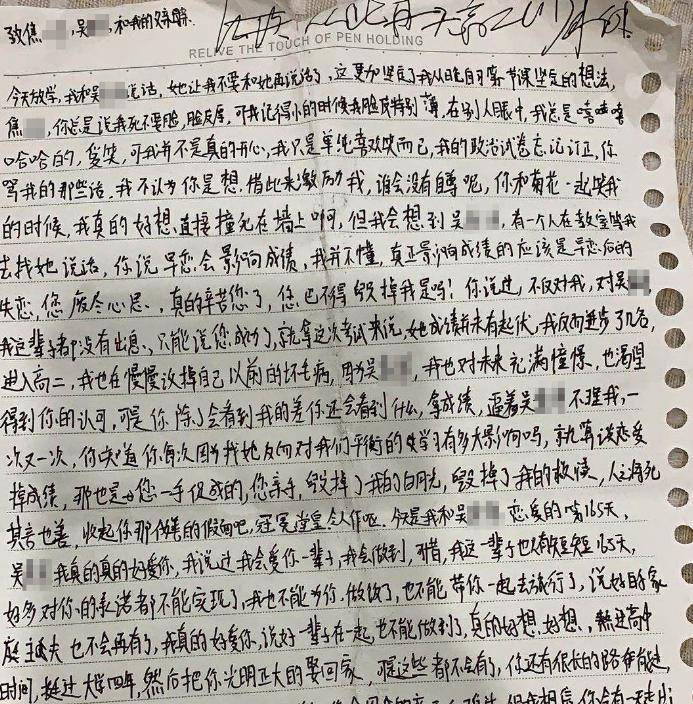 致焦,吴,和我的妹妹
RELIVE THE TOUCH OF PEN HOLDING
今天放学,我和吴说话,她让我不要和她再说话了,这更加坚定了我从晚自习第一节课坚定的想法,
焦,你总是说我死不要脸,脸皮厚,可我记得小的时候我脸皮特别薄,在别人眼中,我总是嘻嘻
哈哈的,爱笑,可我并不是真的开心,我只是单纯喜欢笑而已,我的政治试卷忘记订正,你
骂我的那些话,我不认为你是想借此来激励我,谁会没有自尊呢,你和菊花一起哭我
的时候,我真的好想直接撞死在墙上啊,但我会想到吴,有一个人在教室等我
去找她说话,你说早恋会影响成绩,我并不懂,真正影响成绩的应该是早恋后的
失恋,您废尽心思,真的辛苦您了,您巴不得毁掉我是吗!你说过,不仅对我,对吴
我这辈子都没有出息,只能说您成功了,就拿这次考试来说,她成绩并未有起伏,我反而进步了几名,
进入高二,我也在慢慢改掉自己以前的坏毛病,因为吴,我也对未来充满憧憬,也渴望
得到你的认可,可是你除了会看到我的差你还会看到什么,拿成绩,逼着吴不理我,一
次又一次,你知道你每次因为找她反而对我们平衡的学习有多大影响吗,就算谈恋爱
掉成绩,那也是您一手促成的,您亲手,毁掉了我的白月光,毁掉了我的救赎,人之将死
其言也善,收起你那伪善的假面吧,冠冕堂皇令人作呕,今天是我和吴恋爱的第165天,
吴我真的真的好爱你,我说过我会爱你一辈子,我会做到,可惜,我这一辈子也只有短短165天,
好多对你的承诺都不能实现了,我也不能为你做饭了,也不能带你一起去旅行了,说好的家
庭主夫也不会再有了,我真的好爱你,说好一辈子在一起,也不能做到了,真的好想,好想,熬过高中
时间,挺过大学四年,然后把你光明正大的娶回家,可是这些都不会有了,你还有很长的路要走,